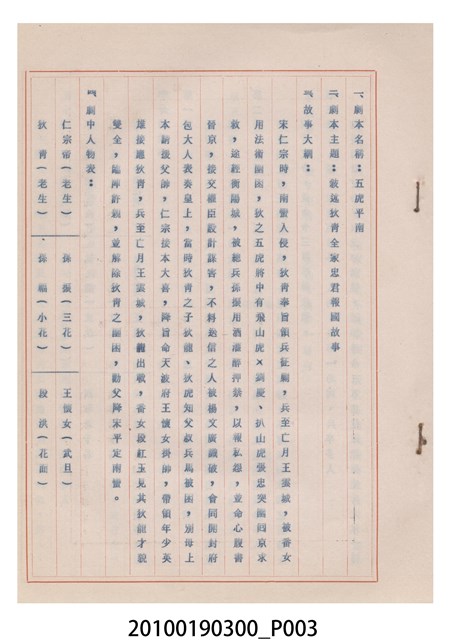 一、劇本名稱：五虎平南
二、劇本主題：敘述狄青全家忠君報國故事
三、故事大綱：
宋仁宗時，南蠻入侵，狄青奉旨領兵征剿，兵至亡月王蘭城，被番女
用法術圍困，狄之五虎將中有飛山虎×劉慶、扒山虎張忠突圍回京求
救，途經衡陽城，被總兵孫振用酒灌醉押禁，以報私怨，並命心腹書
晉京，接交權臣設計謀害，不料送信之人被楊文廣識破，會同開封府
包大人奏皇上，當時狄青之子狄龍、狄虎知父叔兵馬被困，別母上
本請援父帥，仁宗接本大喜，降旨命天波府王懷女掛帥，帶領年少英
雄接應狄青，兵至亡月王蘭城，狄龍出戰，番女段紅玉見其狄龍才貌
雙全，臨陣許親，並解除狄青之圍困，勸父降宋平定南蠻。
四、劇中人物表：
仁宗帝（老生） 孫　振（三花） 王懷女（武旦）
狄　青（老生） 孫　福（小花） 段　洪（花面）
20100190300_P003